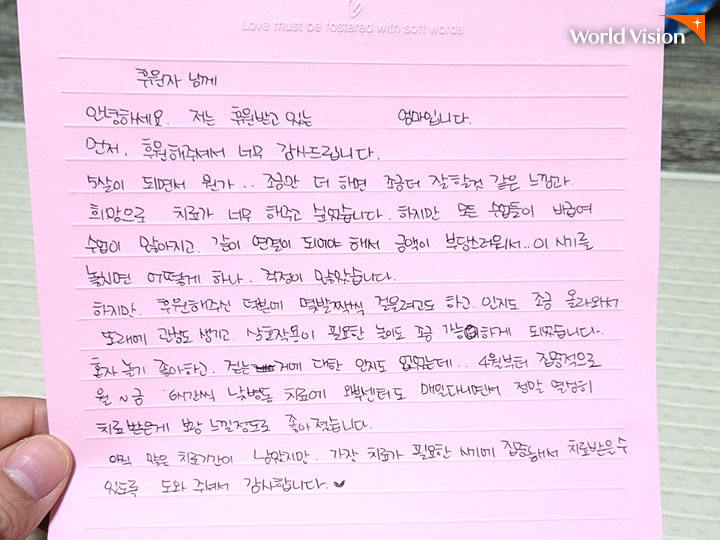 Love must be fostered with soft words
World Vision
후원자 님께
안녕하세요. 저는 후원받고 있는 엄마입니다.
먼저, 후원해주셔서 너무 감사드립니다.
5살이 되면서 뭔가.. 조금만 더 하면 조금더 잘할것 같은 느낌과
희망으로 치료가 너무 하고 싶었습니다. 하지만 모든 수업들이 비급여
수업이 많아지고. 같이 연결이 되어야 해서 금액이 부담스러워서.. 이 시기를
놓치면 어떻게 하나.. 걱정이 많았습니다.
하지만. 후원해주신 덕분에 몇발짝씩 걸을려고도 하고. 인지도 조금 올라와서
또래에 관심도 생기고. 상호작용이 필요한 놀이도 조금 가능하게 되었습니다.
혼자 놀기 좋아하고. 걷는거에 대한 인지도 없었는데.. 4월부터 집중적으로
월~금 6시간씩 낮병동 치료에 외부센터도 매일다니면서 정말 열심히
치료받은게 보람 느낄정도로 좋아졌습니다.
아직 많은 치료기간이 남았지만. 가장 치료가 필요한 시기에 집중해서 치료받을수
있도록 도와 주셔서 감사합니다. ♥